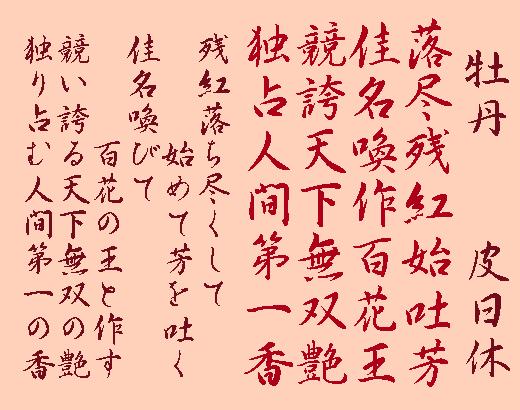 牡丹 皮日休
落尽残紅始吐芳
佳名喚作百花王
競誇天下無双艶
独占人間第一香
残紅落ち尽くして
始めて芳を吐く
佳名喚びて
百花の王と作す
競い誇る天下無双の艶
独り占む人間第一の香